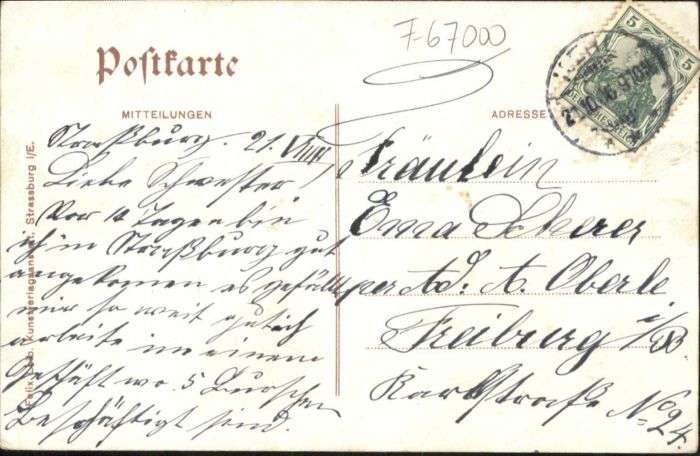 7-67000
Postkarte
MITTEILUNGEN
ADRESSE
Straßburg. 21. VIII
Liebe Schwester!
Vor 4 Tagen bin
ich in Straßburg gut
angekomen es gefällt
mir so weit gut ich
arbeite in einem
Geschäft wo 5 Burschen
Beschäftigt sind.
Fräulein
Ema Scherer
per Ad. A. Oberle
Freiburg i/B
Karlstraße No 24.
Felix Kunstverlagsanstalt, Strassburg i/E.
5 5